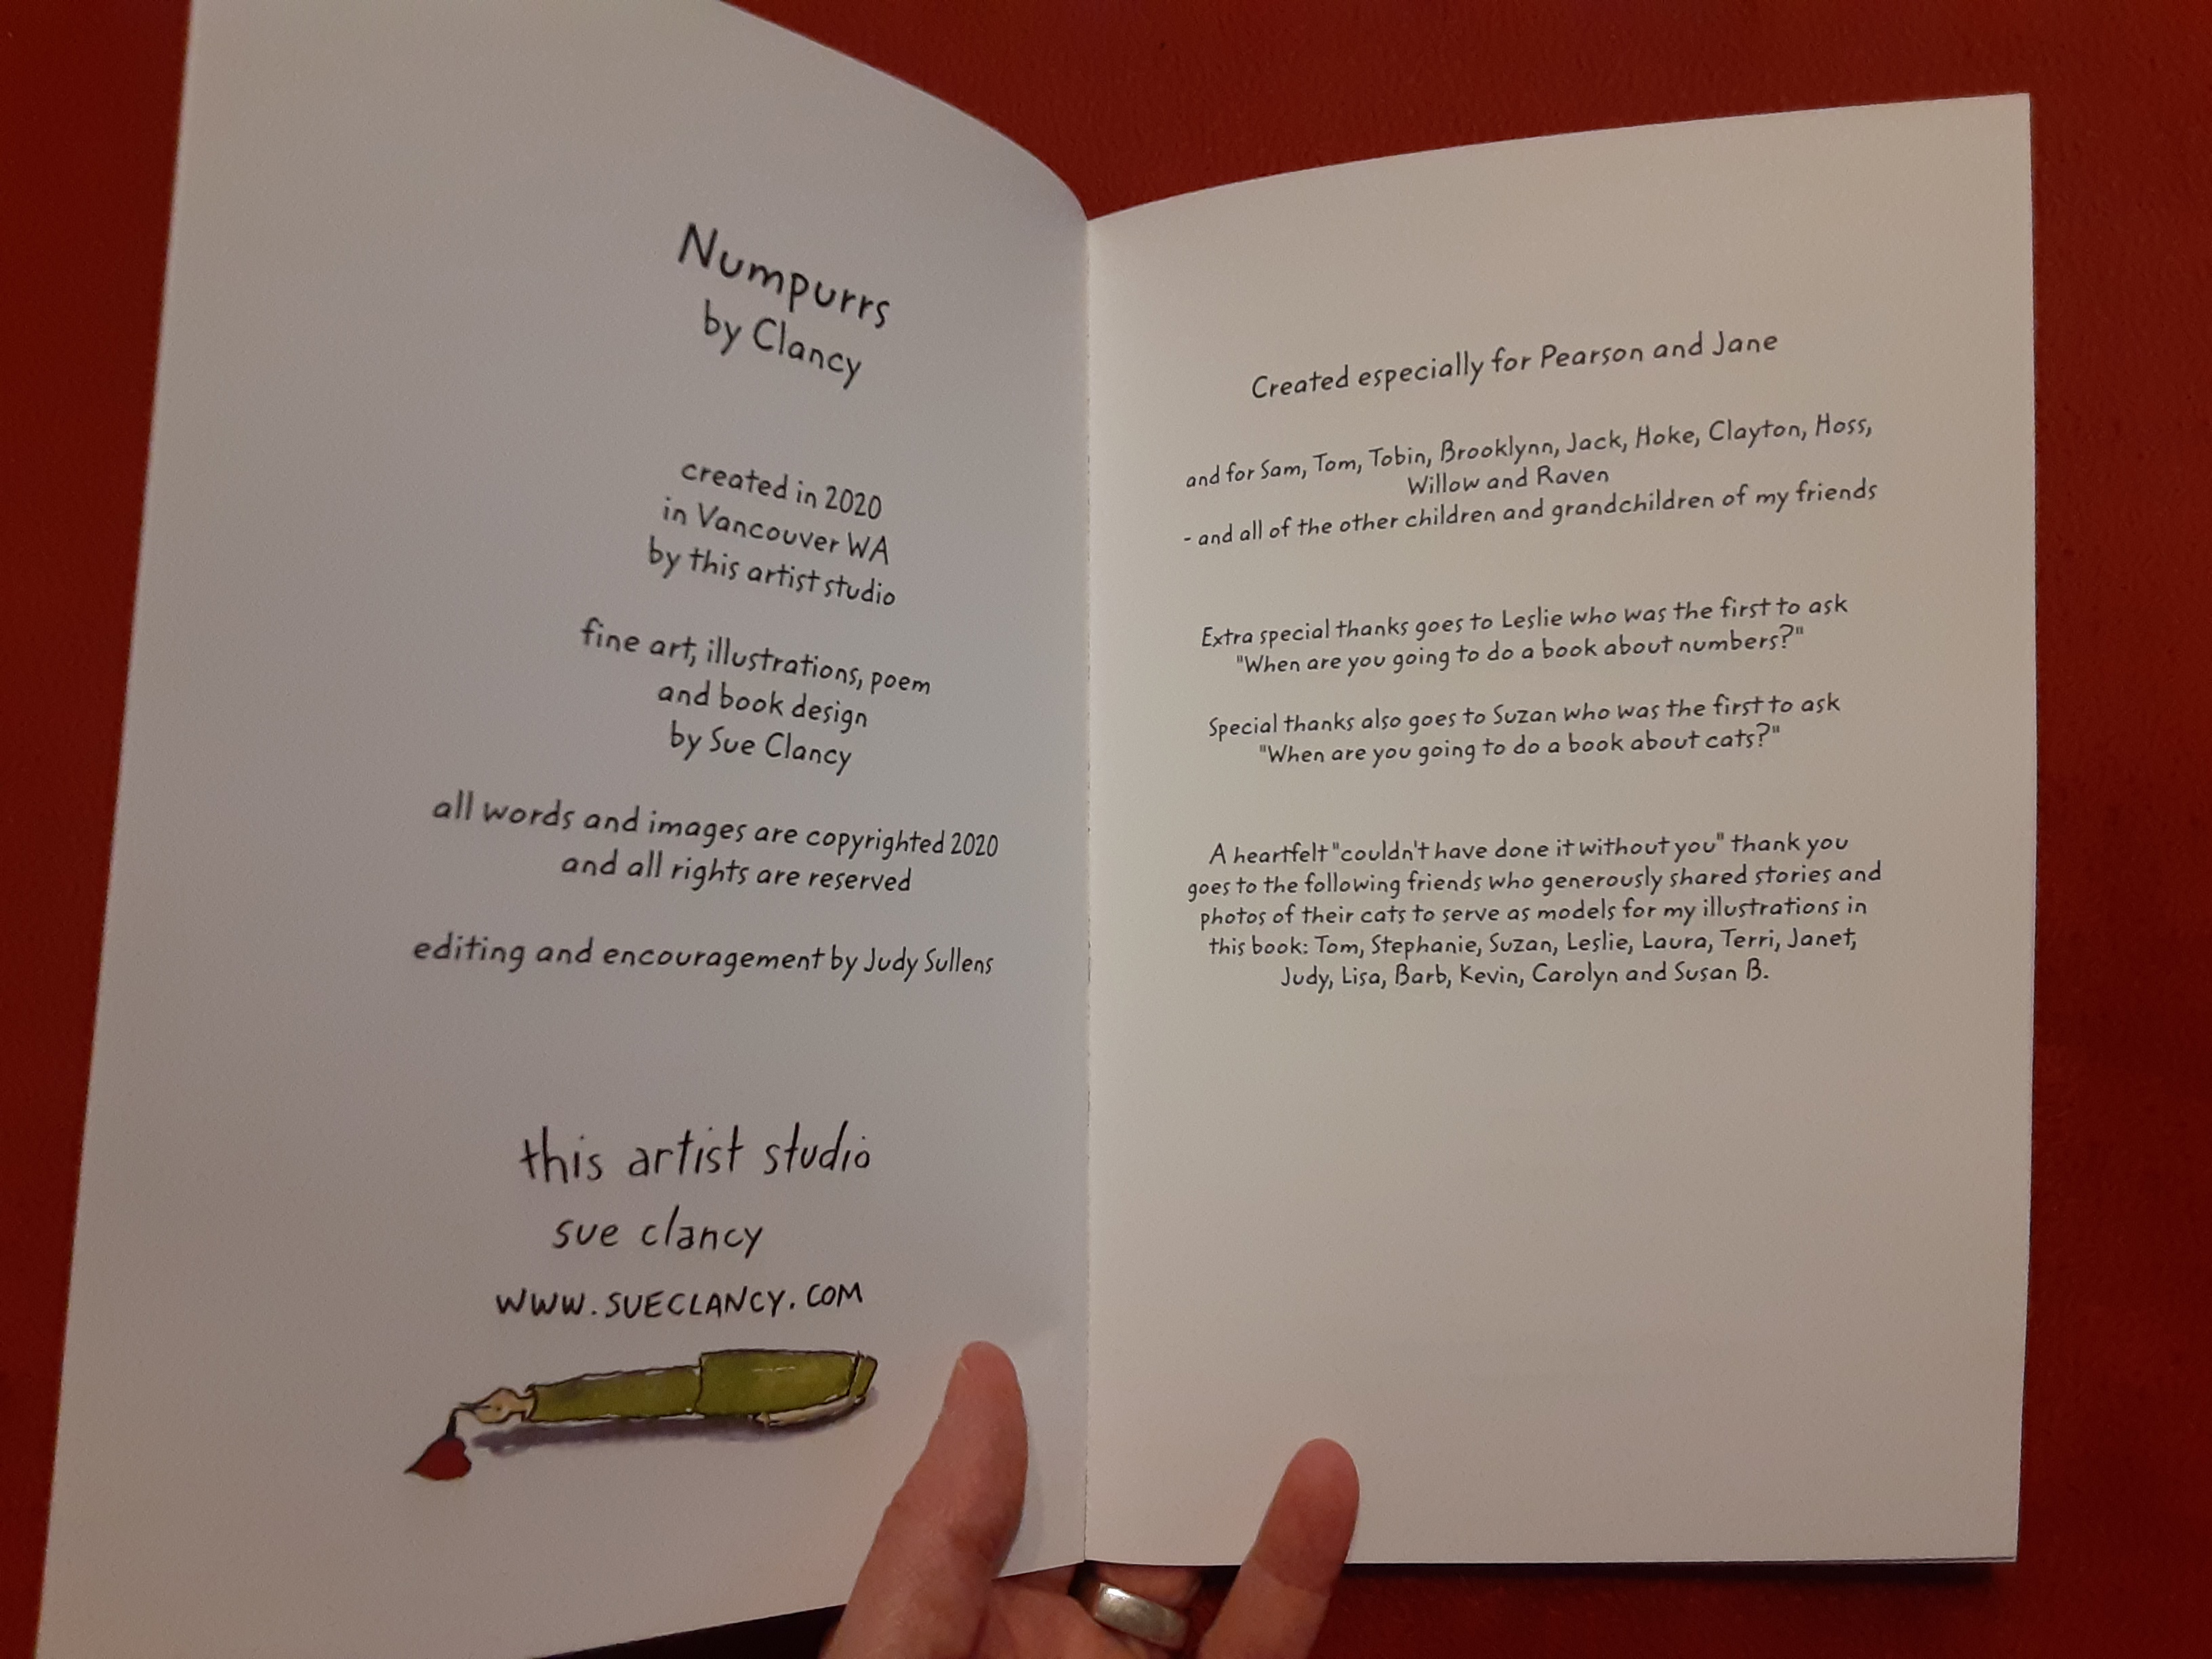 Numpurrs
by Clancy
created in 2020
in Vancouver WA
by this artist studio
fine art, illustrations, poem
and book design
by Sue Clancy
all words and images are copyrighted 2020
and all rights are reserved
editing and encouragement by Judy Sullens
this artist studio
sue clancy
WWW.SUECLANCY.COM
Created especially for Pearson and Jane
and for Sam, Tom, Tobin, Brooklynn, Jack, Hoke, Clayton, Hoss,
Willow and Raven
- and all of the other children and grandchildren of my friends
Extra special thanks goes to Leslie who was the first to ask
"When are you going to do a book about numbers?"
Special thanks also goes to Suzan who was the first to ask
"When are you going to do a book about cats?"
A heartfelt "couldn't have done it without you" thank you
goes to the following friends who generously shared stories and
photos of their cats to serve as models for my illustrations in
this book: Tom, Stephanie, Suzan, Leslie, Laura, Terri, Janet,
Judy, Lisa, Barb, Kevin, Carolyn and Susan B.